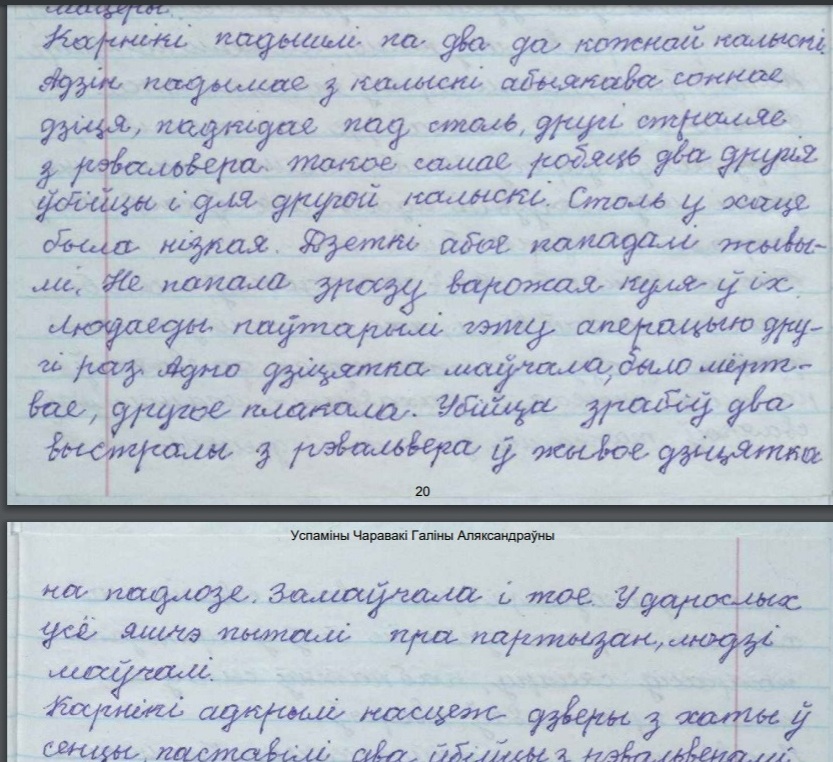 мацеры.
Карнікі падышлі па два да кожнай калыскі.
Адзін падымае з калыскі абыякава соннае
дзіця, падкідае пад столь, другі страляе
з рэвальвера. Такое самае робяць два другія
ўбійцы і для другой калыскі. Столь у хаце
была нізкая. Дзеткі абое пападалі жывы-
мі. Не папала зразу варожая куля ў іх.
Людаеды паўтарылі гэту аперацыю дру-
гі раз. Адно дзіцятка маўчала, было мёрт-
вае, другое плакала. Убійца зрабіў два
выстралы з рэвальвера ў жывое дзіцятка
20
Успаміны Чаравакі Галіны Аляксандраўны
на падлозе. Замаўчала і тое. У дарослых
усё яшчэ пыталі пра партызан, людзі
маўчалі.
Карнікі адкрылі насцеж дзверы з хаты ў
сенцы, паставілі два ўбійцы з рэвальверамі